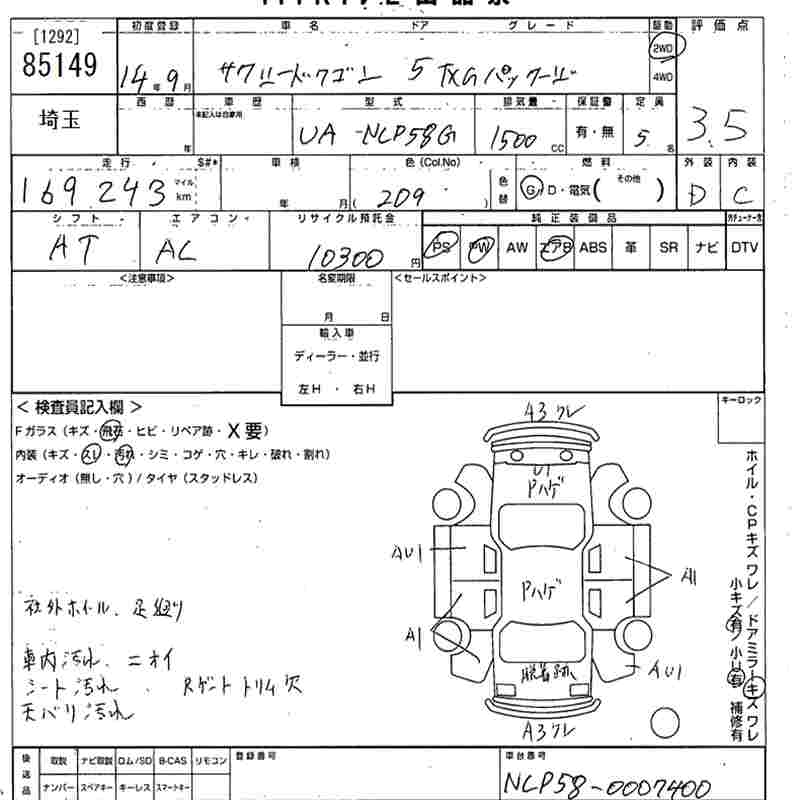 [1292]
85149
埼玉
初度登録 車名 ドア グレード 駆動 評価点
14年9月 サクシードワゴン 5 TXGパッケージ 2WD
4WD
3.5
西暦 車歴 型式 排気量 保証書 定員
未記入は自家用
年 UA-NLP58G 1500cc 有・無 5名
走行 S#* 車検 色(Col.No) 燃料 外装 内装
169,243 マイル km 年 月 ( 209 ) 色替 G・D・電気( その他 ) D C
シフト エアコン リサイクル預託金 純正装備品
AT AC 10300円 PS PW AW エアB ABS 革 SR ナビ DTV
<注意事項> 名変期限 <セールスポイント>
月 日
輸入車
ディーラー・並行
左H ・ 右H
<検査員記入欄>
Fガラス(キズ・飛石・ヒビ・リペア跡・X要)
内装(キズ・スレ・汚れ・シミ・コゲ・穴・キレ・破れ・割れ)
オーディオ(無し・穴)/タイヤ(スタッドレス)
キーロック
A3 ワレ
U1
Pハゲ
AU1
A1
Pハゲ
A1
AU1
脱着跡
A3ワレ
ホイル・CPキズ ワレ/ドアミラーキズ ワレ
小キズ有/小U有 補修有
社外ホイール、足廻り
車内汚れ、ニオイ
シート汚れ、Rゲートトリム穴
天バリ汚れ
後送品 取説 ナビ取説 ロム/SD B-CAS リモコン 登録番号 車台番号
ナンバー スペアキー キーレス スマートキー NLP58-0007400